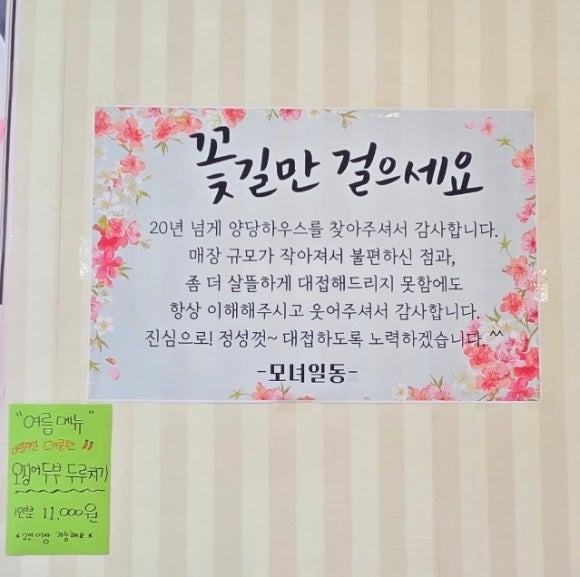 꽃길만 걸으세요
20년 넘게 양당하우스를 찾아주셔서 감사합니다.
매장 규모가 작아져서 불편하신 점과,
좀 더 살뜰하게 대접해드리지 못함에도
항상 이해해주시고 웃어주셔서 감사합니다.
진심으로! 정성껏~ 대접하도록 노력하겠습니다.^^
-모녀일동-
"여름메뉴"
매콤한
오징어두부 두루치기
1인분 11,000원
*2인이상 가능해요*